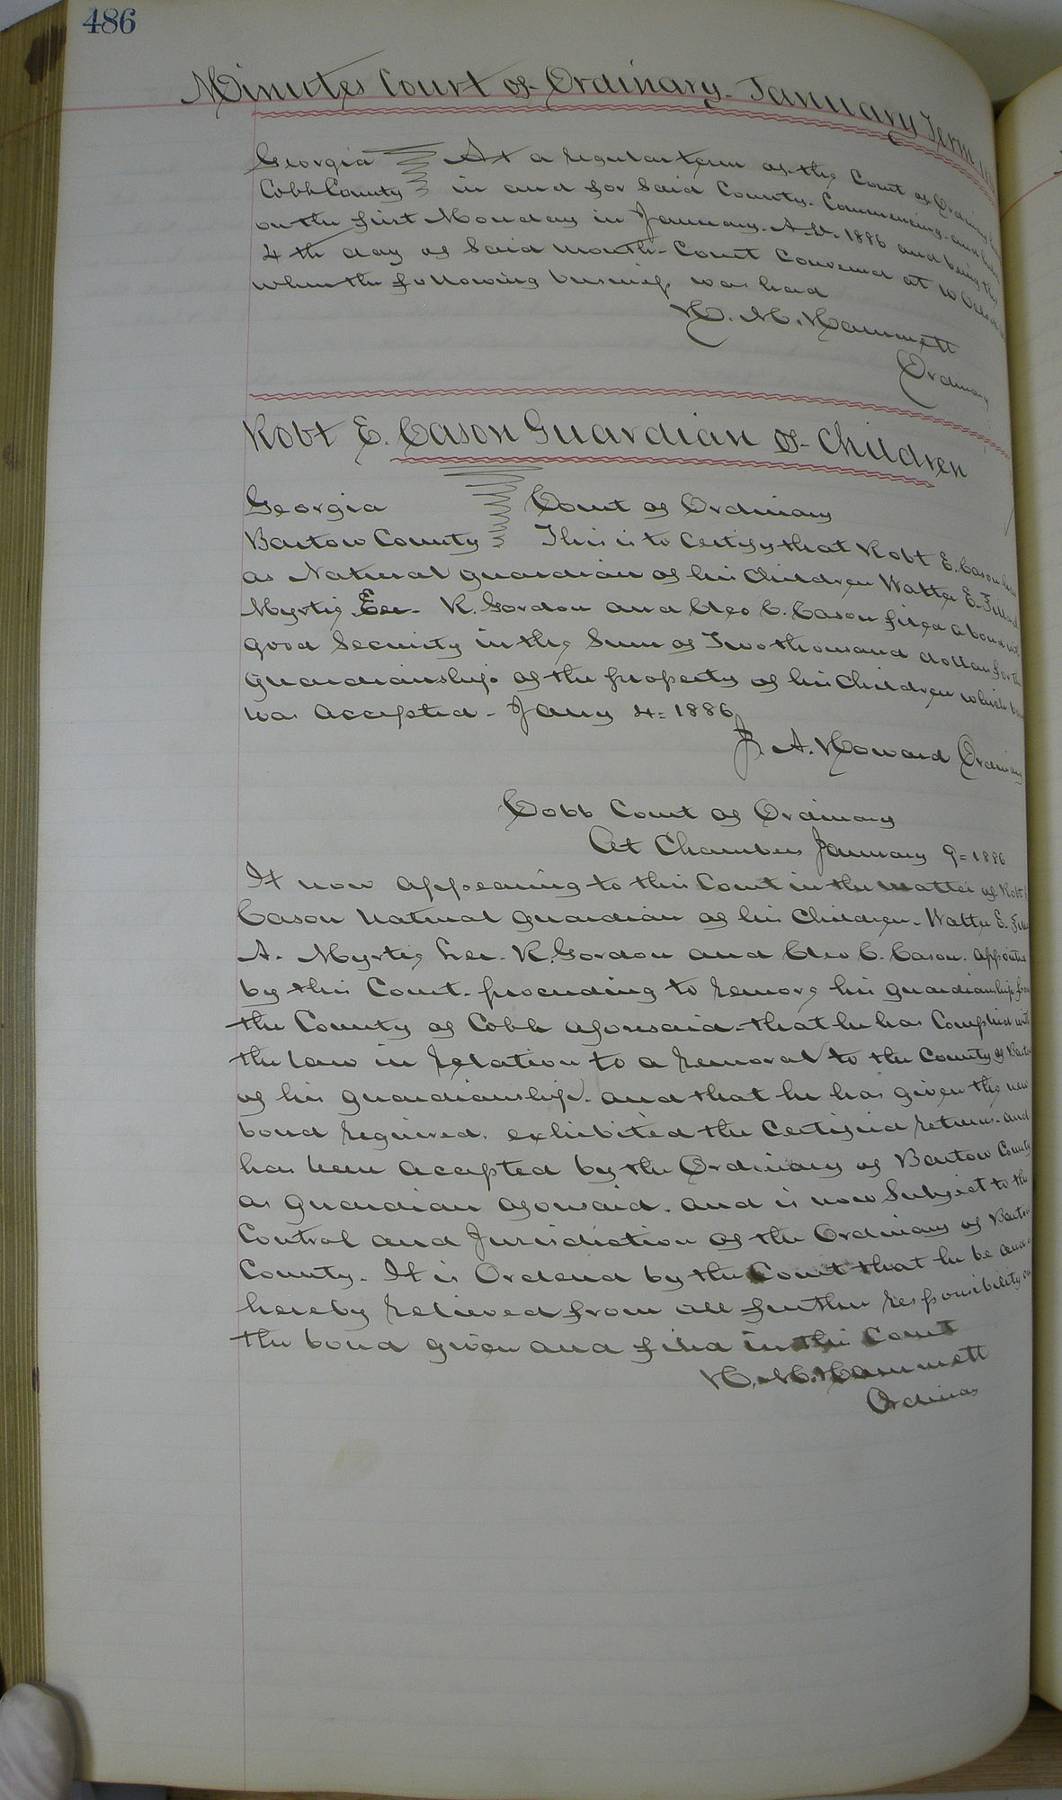 486
Minutes Court of Ordinary January Term
Georgia At a regular term of the Court of Ordinary
Cobb County in and for Said County. Commencing and
on the first Monday in January. A.D. 1886 and being the
4th day of Said month. Court Convened at 10 Oclock
when the following business was had
H. M. Hammett
Ordinary
Robt E. Cason Guardian of Children
Georgia Court of Ordinary
Bartow County This is to Certify that Robt E. Cason
as Natural guardian of his Children Walter E.
Myrtis Lee. R. Gordon and Cleo C. Cason filed a bond with
good Security in the Sum of Two thousand dollars for the
guardianship of the property of his Children which
was accepted - Jany 4 = 1886
J. A. Howard Ordinary
Cobb Court of Ordinary
At Chambers January 9 = 1886
It now appearing to this Court in the matter of Robt
Cason natural guardian of his Children. Walter E.
A. Myrtis Lee. R. Gordon and Cleo C. Cason. appointed
by this Court. proceeding to remove his guardianship from
the County of Cobb aforesaid. that he has Complied with
the law in relation to a removal to the County of Bartow
of his guardianship. and that he has given the new
bond required. exhibited the Certified returns. and
has been accepted by the Ordinary of Bartow County
as guardian aforesaid. and is now Subject to the
Control and Jurisdiction of the Ordinary of Bartow
County. It is Ordered by the Court that he be and is
hereby relieved from all further responsibility on
the bond given and filed in this Court
H. M. Hammett
Ordinary